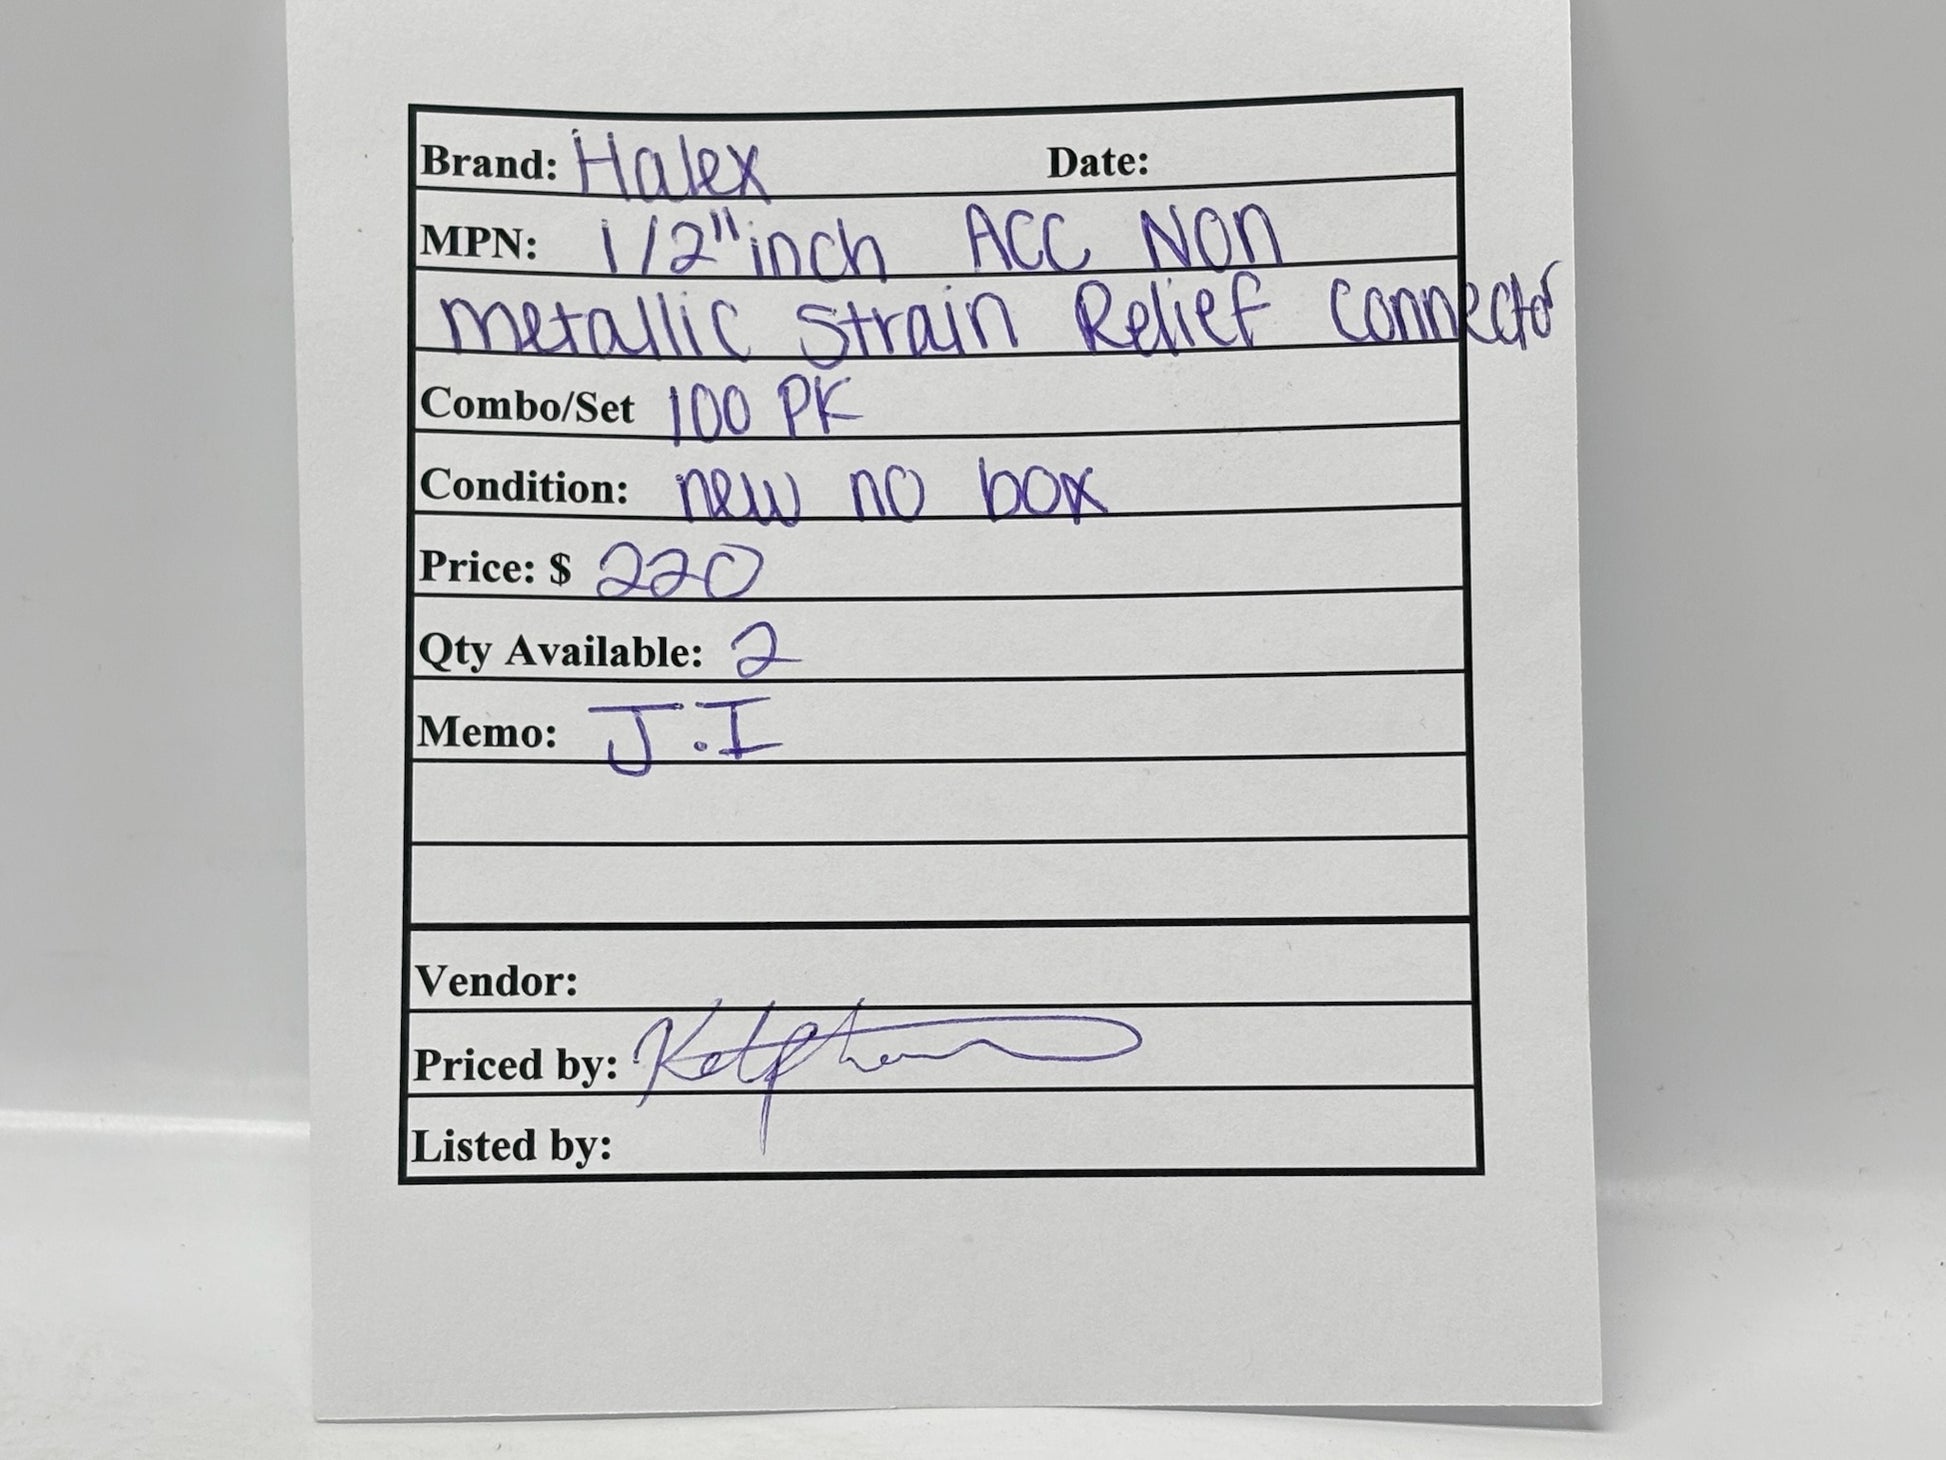 Brand: Halex Date:
MPN: 1/2" inch ACC Non
metallic Strain Relief Connector
Combo/Set 100 PK
Condition: new no box
Price: $ 220
Qty Available: 2
Memo: J.I
Vendor:
Priced by:
Listed by: